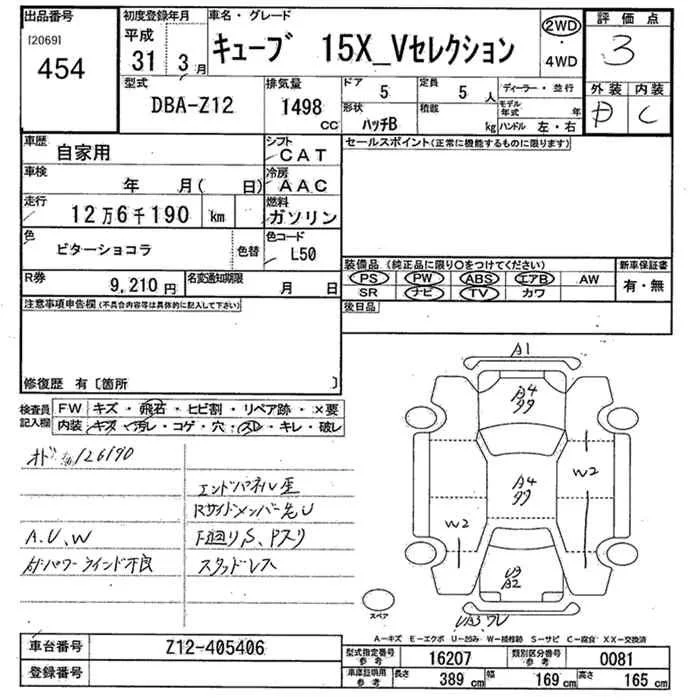 出品番号
[2069]
454
初度登録年月
平成
31 3月
車名・グレード
キューブ 15X_Vセレクション
2WD
・
4WD
評価点
3
外装 内装
D C
型式
DBA-Z12
排気量
1498
CC
ドア 5
定員 5 人
ディーラー・並行
形状
ハッチB
積数
kg
モデル年式 年
ハンドル 左・右
車歴
自家用
シフト
CAT
セールスポイント(正常に機能するものに限ります)
車検
年 月( 日)
冷房
AAC
走行
12万6千190 km
燃料
ガソリン
色
ビターショコラ
色替
色コード
L50
装備品(純正品に限り○をつけてください)
PS PW ABS エアB AW
SR ナビ TV カワ
新車保証書
有・無
R券
9,210円
名変通知期限
月 日
後日品
注意事項申告欄(不具合内容等は具体的に記入して下さい)
修復歴 有〔箇所 〕
検査員記入欄
FW キズ・飛石・ヒビ割・リペア跡・×要
内装 キズ・汚レ・コゲ・穴・スレ・キレ・破レ
126190
エンドパネル歪
Rサイドメンバー先U
A.U.W
F廻りS、Pスリ
パワーウインド不良
スタッドレス
A1
A4
A4
W2
W2
A2
スペア
A-キズ E-エクボ U-凹み W-補修跡 S-サビ C-腐食 XX-交換済
車台番号
Z12-405406
登録番号
型式指定番号
参考
16207
類別区分番号
参考
0081
車庫証明用
参考
長さ 389 cm
幅 169 cm
高さ 165 cm